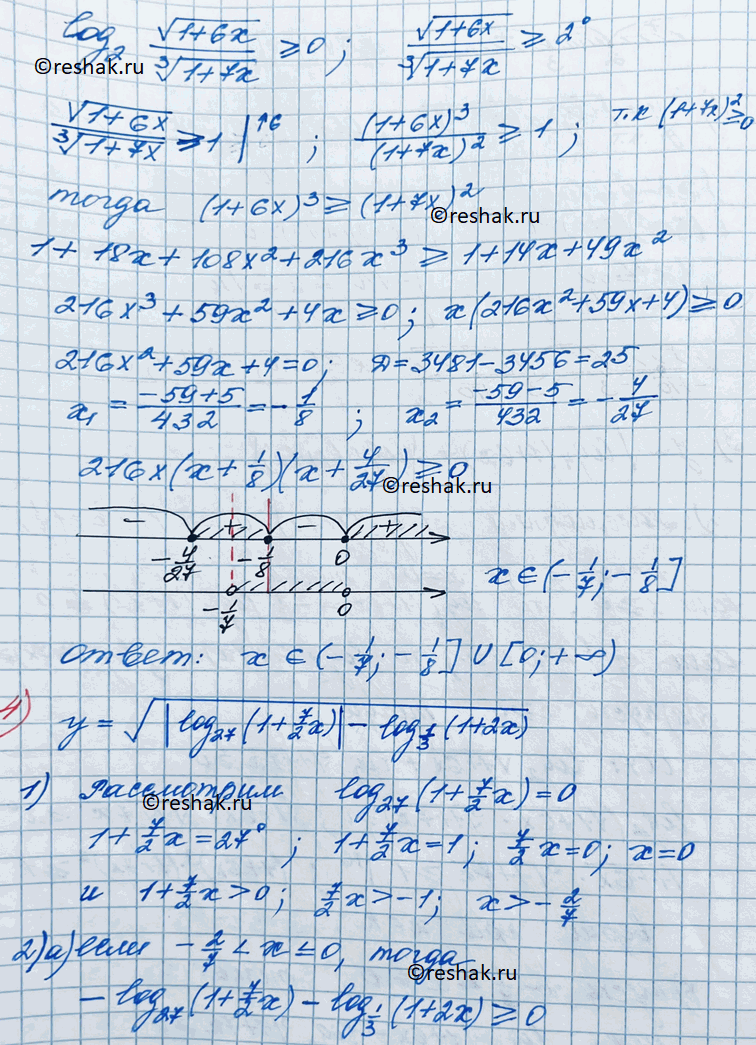 log₂ √(1+6x)/∛(1+7x) ≥ 0 ; √(1+6x)/∛(1+7x) ≥ 2⁰
©reshak.ru
√(1+6x)/∛(1+7x) ≥ 1 |↑6 ; (1+6x)³/(1+7x)² ≥ 1 ; т.к (1+7x)² ≥ 0
тогда (1+6x)³ ≥ (1+7x)²
©reshak.ru
1 + 18x + 108x² + 216x³ ≥ 1+14x+49x²
216x³ + 59x² + 4x ≥ 0 ; x(216x²+59x+4) ≥ 0
216x²+59x+4=0 ; Д=3481−3456=25
x₁ = (−59+5)/432 = −1/8 ; x₂ = (−59−5)/432 = −4/27
216x(x+1/8)(x+4/27) ≥ 0
©reshak.ru
− + − +
−4/27 −1/8 0
x ∈ (−1/7; −1/8]
−1/7 0
Ответ: x ∈ (−1/7; −1/8] ∪ [0; +∞)
4) y = √(|log₂₇(1+7/2x)| − log_{1/3}(1+2x))
1) Рассмотрим log₂₇(1+7/2x) = 0
©reshak.ru
1+7/2x = 27⁰ ; 1+7/2x = 1 ; 7/2x = 0 ; x = 0
и 1+7/2x > 0 ; 7/2x > −1 ; x > −2/7
2) а) если −2/7 < x ≤ 0, тогда
©reshak.ru
−log₂₇(1+7/2x) − log_{1/3}(1+2x) ≥ 0